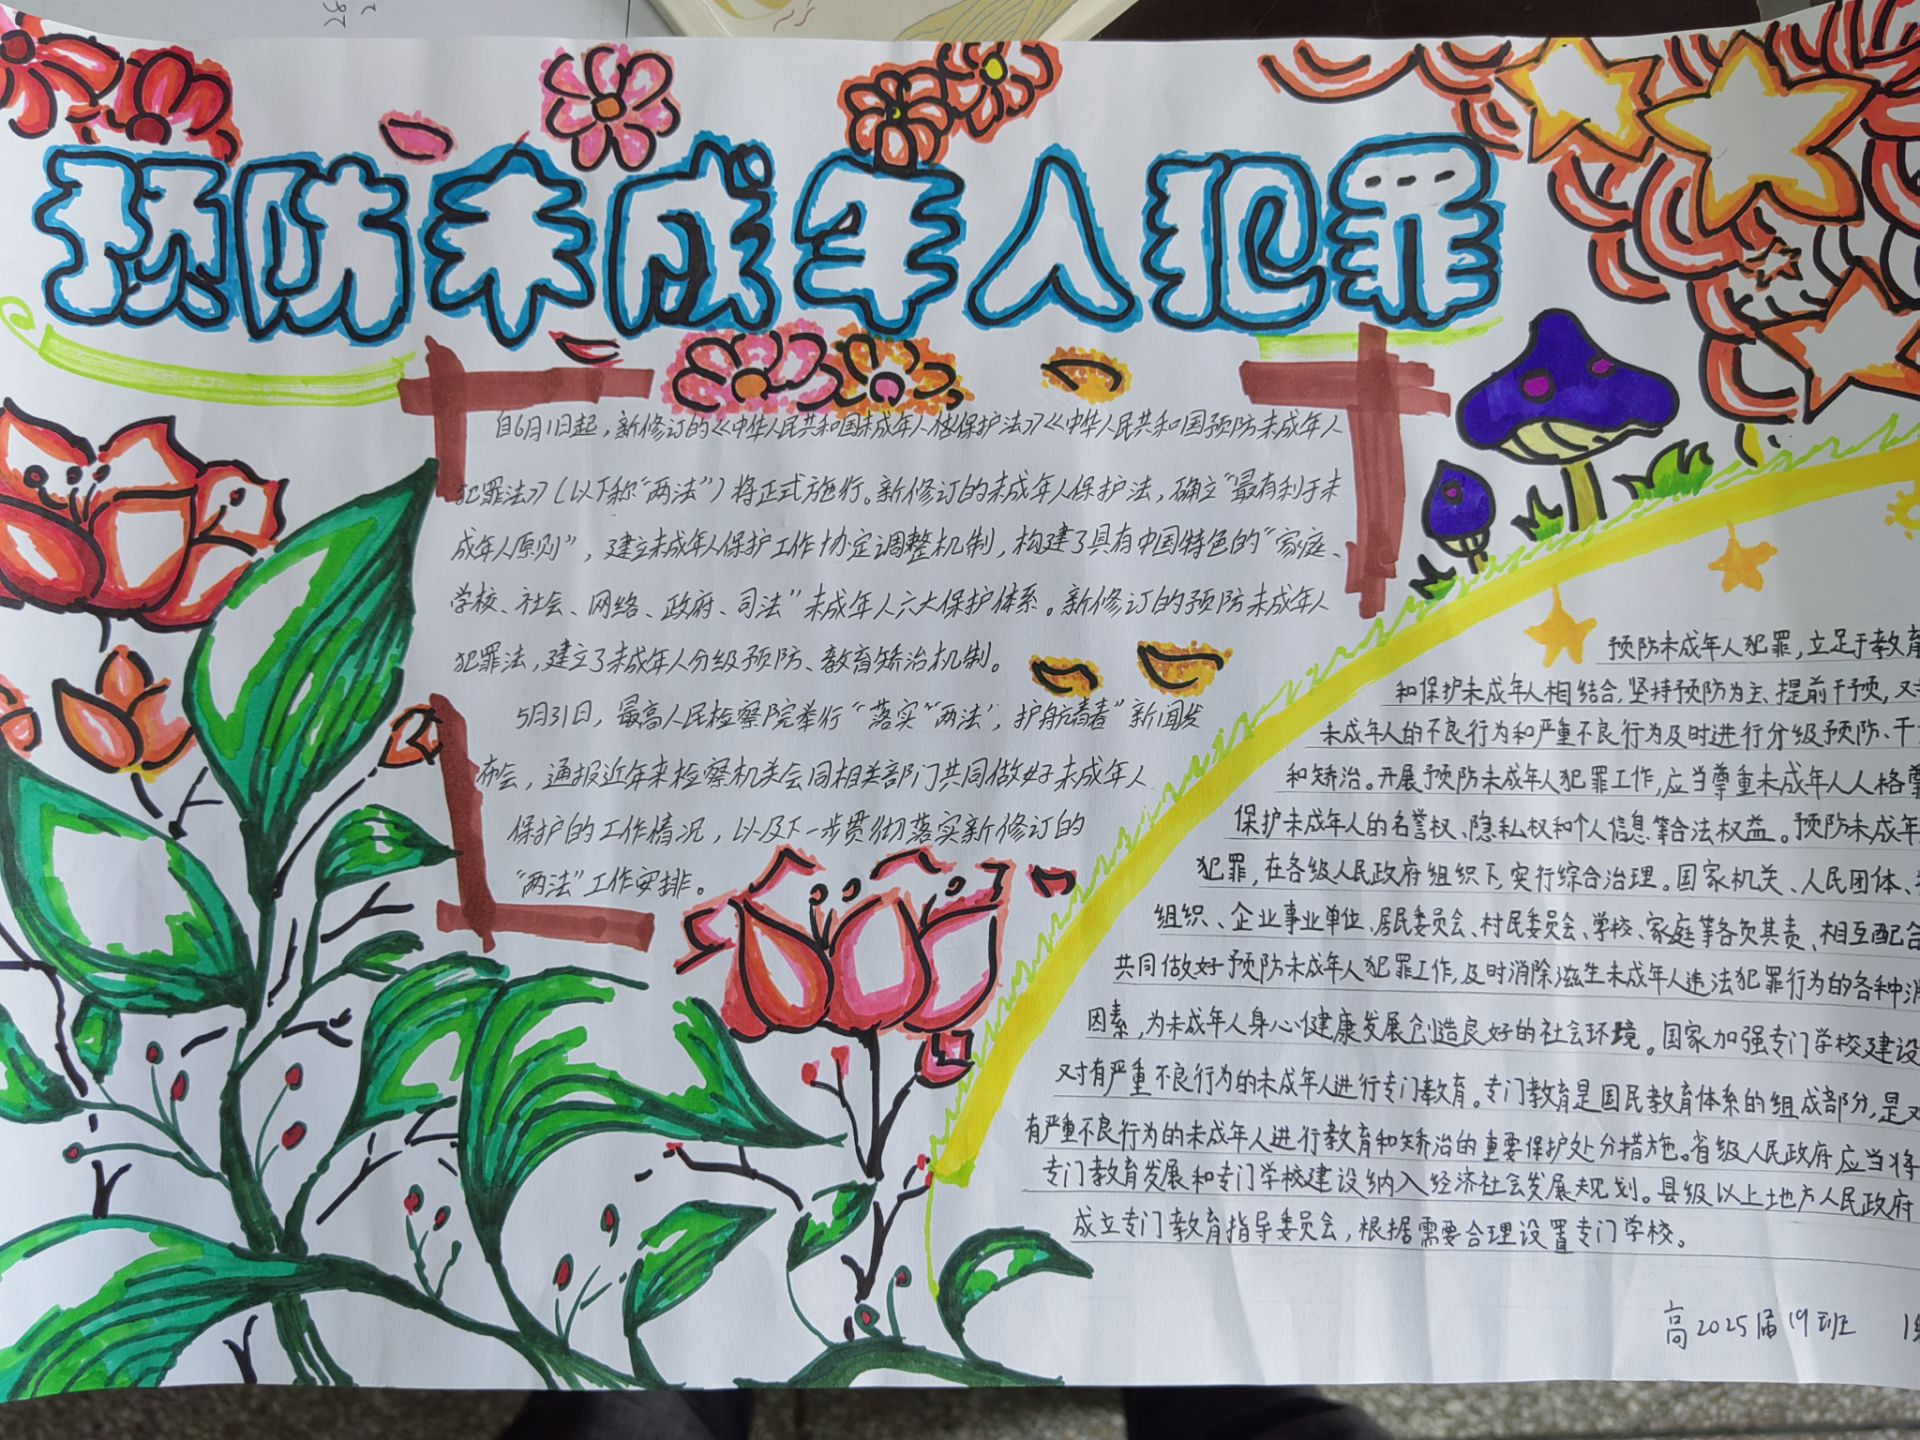 预防未成年人犯罪
自6月1日起,新修订的《中华人民共和国未成年人保护法》《中华人民共和国预防未成年人
犯罪法》(以下称“两法”)将正式施行。新修订的未成年人保护法,确立“最有利于未
成年人原则”,建立未成年人保护工作协定调整机制,构建了具有中国特色的“家庭、
学校、社会、网络、政府、司法”未成年人六大保护体系。新修订的预防未成年人
犯罪法,建立了未成年人分级预防、教育矫治机制。
5月31日,最高人民检察院举行“落实“两法”,护航青春”新闻发
布会,通报近年来检察机关会同相关部门共同做好未成年人
保护的工作情况,以及下一步贯彻落实新修订的
“两法”工作安排。
预防未成年人犯罪,立足于教育
和保护未成年人相结合,坚持预防为主、提前干预,
未成年人的不良行为和严重不良行为及时进行分级预防、干
和矫治。开展预防未成年人犯罪工作,应当尊重未成年人人格尊
保护未成年人的名誉权、隐私权和个人信息等合法权益。预防未成年
犯罪,在各级人民政府组织下,实行综合治理。国家机关、人民团体、
组织、企业事业单位、居民委员会、村民委员会、学校、家庭等各负其责、相互配合
共同做好预防未成年人犯罪工作,及时消除滋生未成年人违法犯罪行为的各种消
因素,为未成年人身心健康发展创造良好的社会环境。国家加强专门学校建设
对有严重不良行为的未成年人进行专门教育。专门教育是国民教育体系的组成部分,是对
有严重不良行为的未成年人进行教育和矫治的重要保护处分措施。省级人民政府应当将
专门教育发展和专门学校建设纳入经济社会发展规划。县级以上地方人民政府
成立专门教育指导委员会,根据需要合理设置专门学校。
高2025届19班